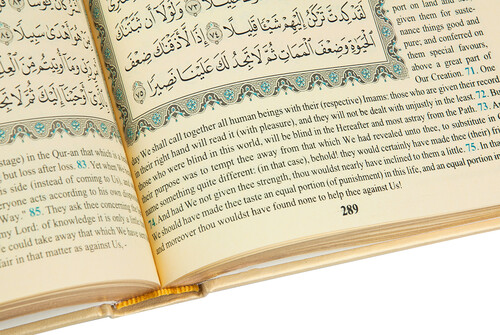 أَهْدَىٰ سَبِيلًا ٨٤
أَوْحَيْنَا إِلَيْكَ ثُمَّ لَا تَجِدُ
stage) in the Qur-an that which is a
but loss after loss. 83. Yet when We
his side (instead of coming to Us), and
everyone acts according to his own dis
Way." 85. They ask thee concerning the
my Lord: of knowledge it is only a little
We could take away that which We have
fair in that matter as against Us,
وَلَوْلَا أَن ثَبَّتْنَٰكَ
لَقَدْ كِدتَّ تَرْكَنُ إِلَيْهِمْ شَيْـًٔا قَلِيلًا ٧٤ إِذًا لَّأَذَقْنَٰكَ ضِعْفَ
ٱلْحَيَوٰةِ وَضِعْفَ ٱلْمَمَاتِ ثُمَّ لَا تَجِدُ لَكَ عَلَيْنَا نَصِيرًا
٧٥
port on land and
given them for suste-
nance things good and
pure; and conferred on
them special favours,
above a great part of
Our Creation. 71. One
day We shall call together all human beings with their (respective) Imams: those who are given their record
in their right hand will read it (with pleasure), and they will not be dealt with unjustly in the least. 72. But
those who were blind in this world, will be blind in the Hereafter and most astray from the Path. 73.
their purpose was to tempt thee away from that which We had revealed unto thee, to substitute in
name something quite different: (in that case), behold! they would certainly have made thee (their)
74. And had We not given thee strength, thou wouldst nearly have inclined to them a little. 75. In that
We should have made thee taste an equal portion (of punishment) in this life, and an equal portion
and moreover thou wouldst have found none to help thee against Us!
289